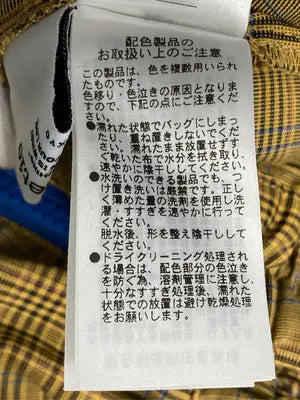 配色製品の
お取扱い上のご注意
この製品は、色を複数用いられ
たものです。
色移り・色泣きの原因となりま
すので、下記の点にご注意くだ
さい。
●濡れた状態でバッグにしまっ
たり、重ね置きしないでくだ
さい。濡れたまま放置せずす
ぐ乾いた布で水分を拭き取り、
速やかに陰干ししてください。
●水洗いのできる製品でも、つ
け置き洗いは厳禁です。正し
く薄めた量の洗剤を使用し洗
濯・すすぎを速やかに行って
ください。
脱水後、形を整え陰干しして
ください。
●ドライクリーニング処理され
る場合は、配色部分の色泣き
を防ぐ為、溶剤管理に注意し、
十分なすすぎ処理後、濡れた
状態での放置は避け乾燥処理
をお願いします。